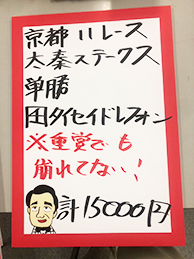 京都11レース
太秦ステークス
単勝
田タイセイドレフォン
※重賞でも
崩れてない!
計15000円